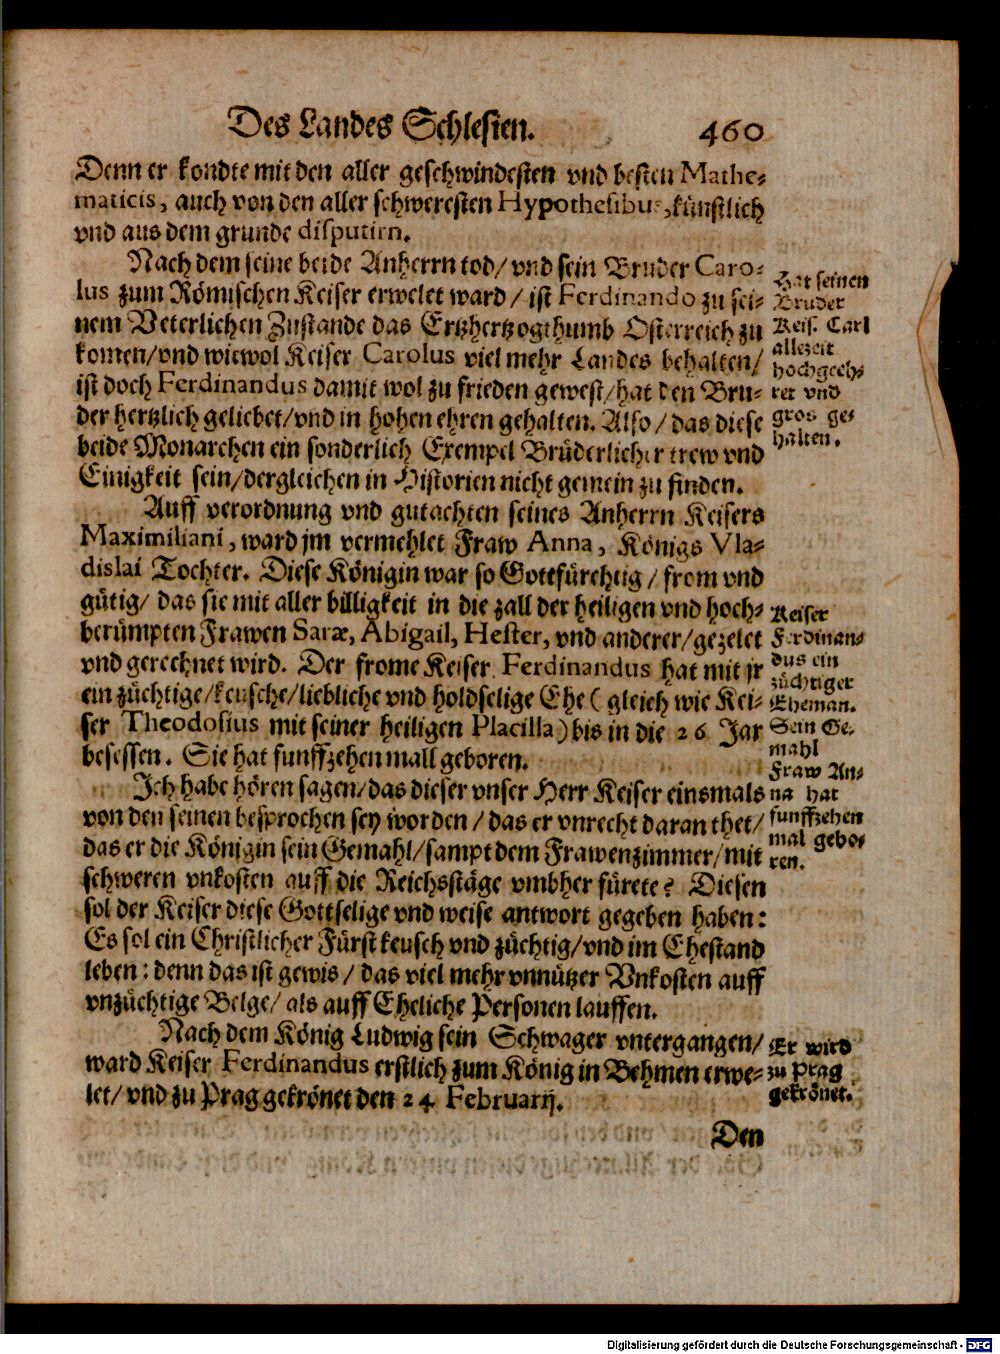 Des Landes Schlesien. 460
Denn er kondte mit den aller geschwindesten vnd besten Mathe-
maticis, auch von den aller schweresten Hypothesibus, künstlich
vnd aus dem grunde disputirn.
Nach dem seine beide Anherrn tod/ vnd sein Bruder Caro-
lus zum Römischen Keiser erwelet ward/ ist Ferdinando zu sei-
nem Veterlichen Zustande das Ertzhertzogthumb Osterreich zu
komen/ vnd wiewol Keiser Carolus viel mehr Landes behalten/
ist doch Ferdinandus damit wol zu frieden gewest/ hat den Bru-
der hertzlich geliebet/ vnd in hohen ehren gehalten. Also/ das diese
beide Monarchen ein sonderlich Exempel Brüderlicher trew vnd
Einigkeit sein/ dergleichen in Historien nicht gemein zu finden.
Hat seinen
Bruder
Keis. Carl
allezeit
hochgeeh-
ret vnd
gros ge-
halten.
Auff verordnung vnd gutachten seines Anherrn Keisers
Maximiliani, ward jm vermehlet Fraw Anna, Königs Vla-
dislai Tochter. Diese Königin war so Gottfürchtig/ from vnd
gütig/ das sie mit aller billigkeit in die zall der heiligen vnd hoch-
berümpten Frawen Saræ, Abigail, Hester, vnd anderer/ gezelet
vnd gerechnet wird. Der frome Keiser Ferdinandus hat mit jr
ein züchtige/ keusche/ liebliche vnd holdselige Ehe (gleich wie Kei-
ser Theodosius mit seiner heiligen Placilla) bis in die 26 Jar
besessen. Sie hat funffzehen mall geboren.
Keiser
Ferdinan-
dus ein
züchtiger
Eheman.
Sein Ge-
mahl
Fraw An-
na hat
funffzehen
mal gebo-
ren.
Ich habe hören sagen/ das dieser vnser Herr Keiser einsmals
von den seinen besprochen sey worden/ das er vnrecht daran thet/
das er die Königin sein Gemahl/ sampt dem Frawenzimmer/ mit
schweren vnkosten auff die Reichsstäge vmbher fürete? Diesen
sol der Keiser diese Gottselige vnd weise antwort gegeben haben:
Es sol ein Christlicher Fürst keusch vnd züchtig/ vnd im Ehestand
leben: denn das ist gewis/ das viel mehr vnnützer Vnkosten auff
vnzüchtige Belge/ als auff Eheliche Personen lauffen.
Nach dem König Ludwig sein Schwager vntergangen/
ward Keiser Ferdinandus erstlich zum König in Behmen erwe-
let/ vnd zu Prag gekrönet den 24 Februarij.
Er wird
zu Prag
gekrönet.
Den
Digitalisierung gefördert durch die Deutsche Forschungsgemeinschaft - DFG